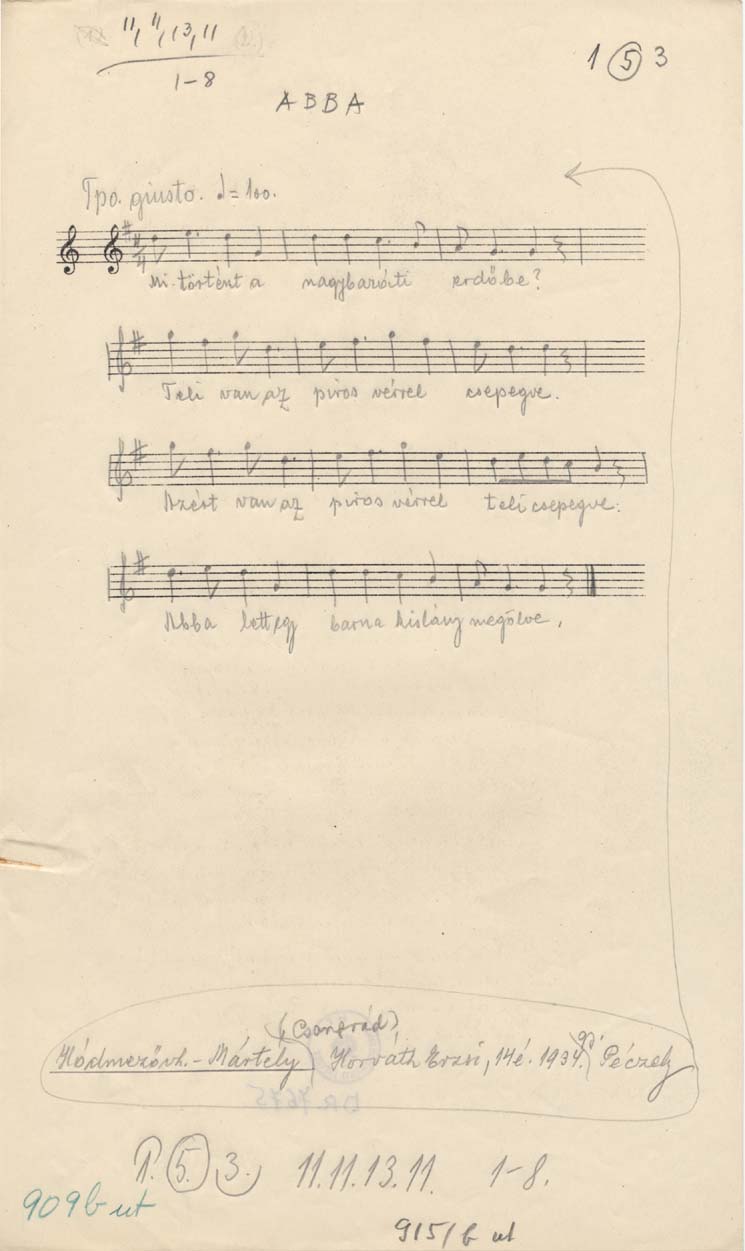 11, 11, 13, 11
1-8
1 5 3
ABBA
Tpo. giusto. ♩= 100.
Mi történt a nagybaráti erdőbe?
Teli van az piros vérrel csepegve.
Azért van az piros vérrel teli csepegve:
Abba lett egy barna kislány megölve,
(Csongrád)
Hódmezővh.-Mártély Horváth Erzsi, 14é. 1934. Péczely
1. 5. 3. 11.11.13.11. 1-8.
909b ut
915/b ut